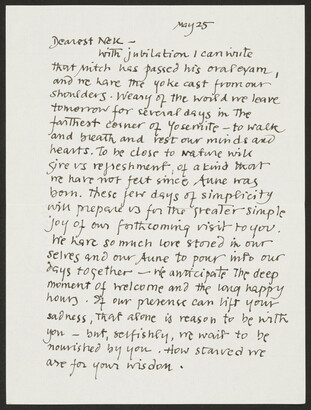 May 25
Dearest Nek —
With jubilation I can write
that Mitch has passed his oral exam,
and we have the yoke cast from our
shoulders. Weary of the world we leave
tomorrow for several days in the
farthest corner of Yosemite — to walk
and breath and rest our minds and
hearts. To be close to nature will
give us refreshment, of a kind that
we have not felt since Anne was
born. These few days of simplicity
will prepare us for the greater simple
joy of our forthcoming visit to you.
We have so much love stored in our
selves and our Anne to pour into our
days together — we anticipate the deep
moment of welcome and the long happy
hours. If our presence can lift your
sadness, that alone is reason to be with
you — but, selfishly, we wait to be
nourished by you. How starved we
are for your wisdom.